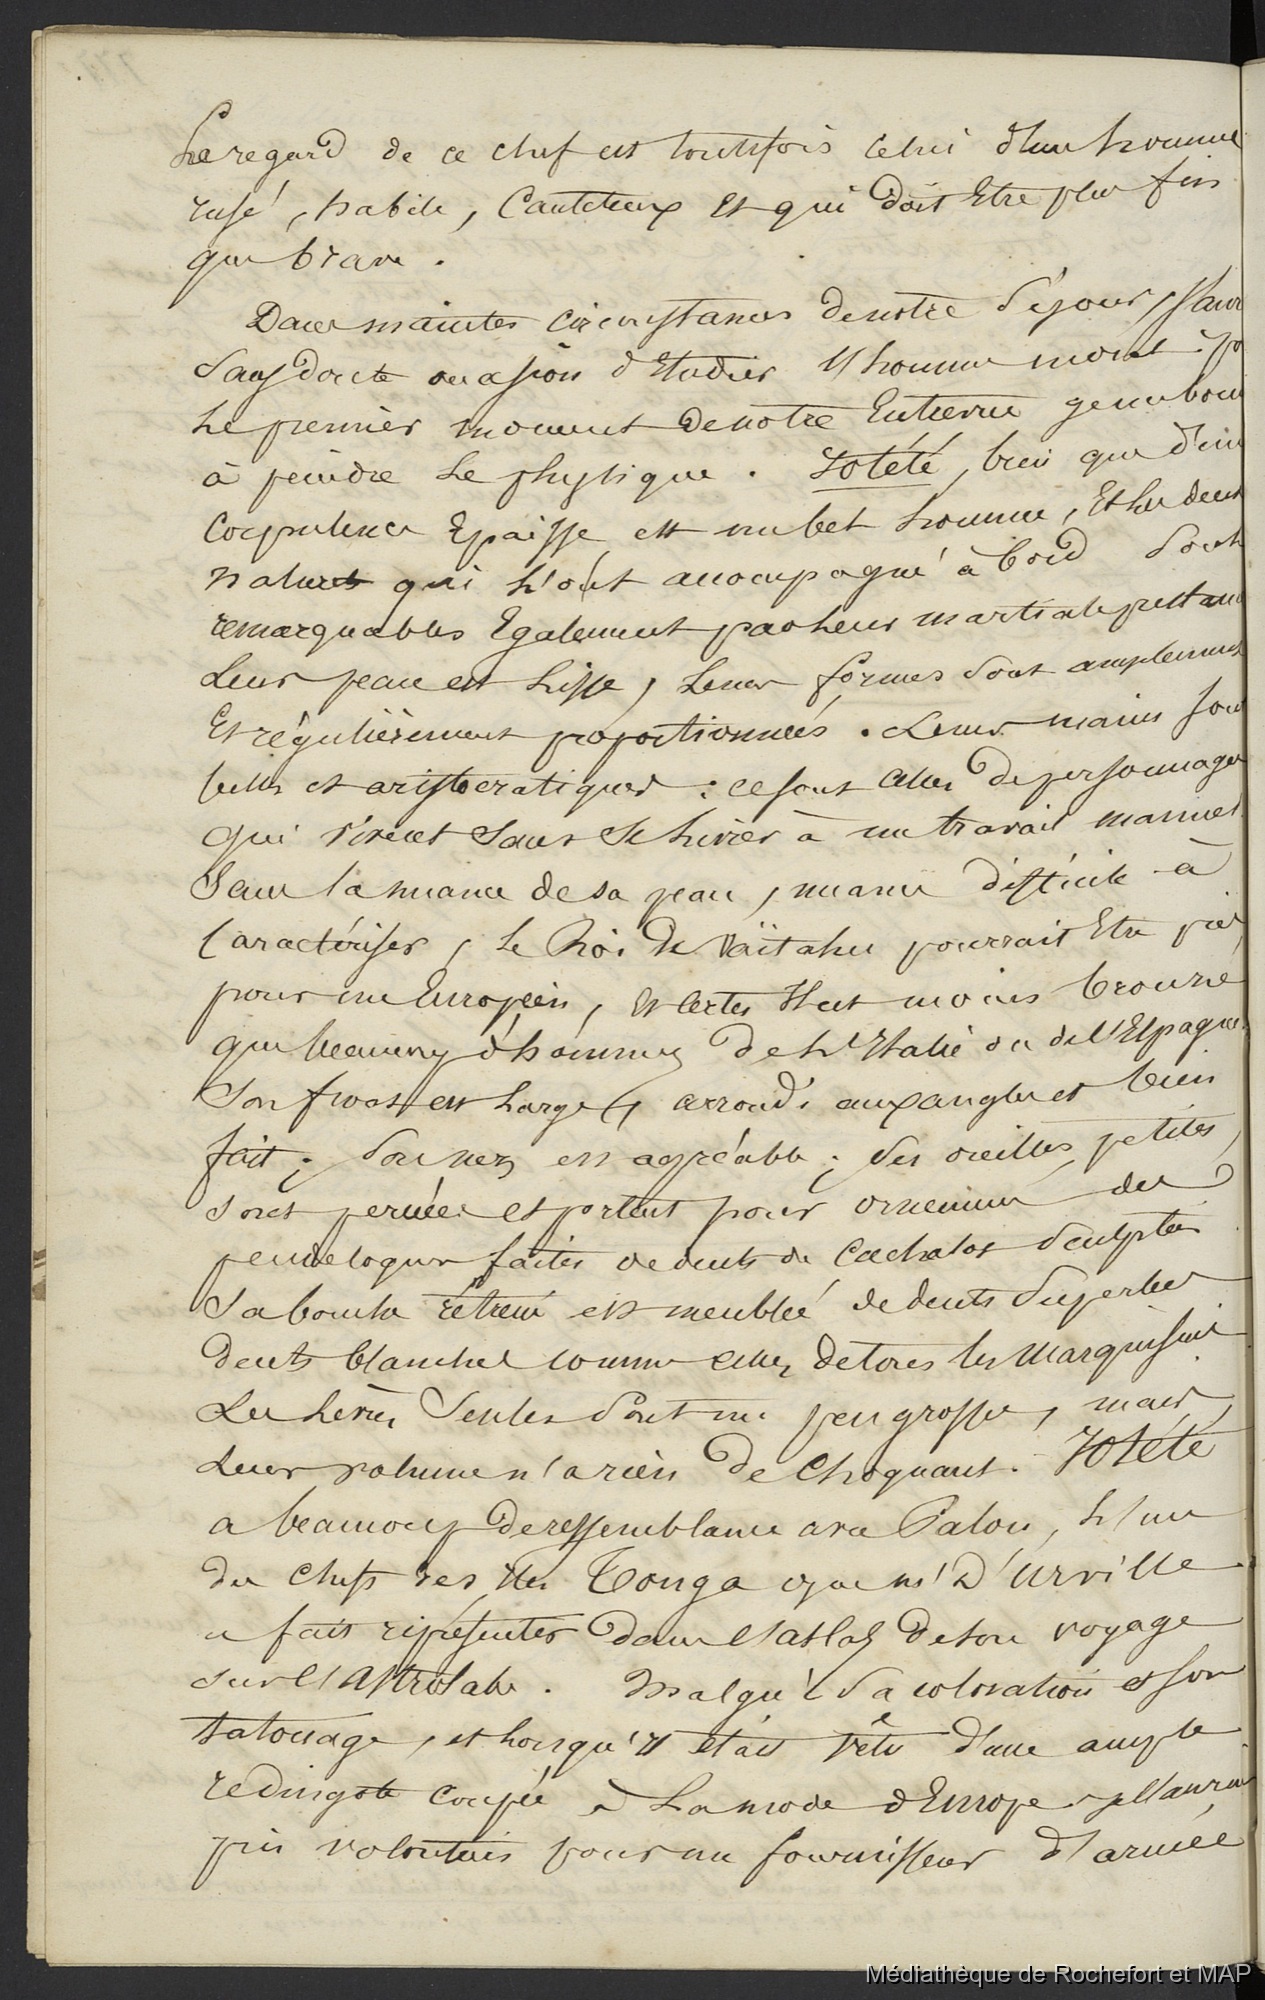 Le regard de ce chef est toutefois celui d'un homme
rusé, habile, Cauteleux Et qui doit Etre plus fin
que brave.
Dans maintes circonstances de notre séjour, j'aurai
Sans doute occasion d'Etudier l'homme moral.
Le premier moment de notre Entrevue
à peindre le physique. Iotété, bien que d'une
Corpulence Epaisse est un bel homme, Et les deux
naturels qui l'ont accompagné à bord Sont
remarquables Egalement par leur martiale prestance
Leur peau est lisse, Leurs formes sont amplement
Et régulièrement proportionnées. Leurs mains sont
belles et aristocratiques : ce sont celles de personnages
qui vivent Sans Se livrer à un travail manuel
Sans la nuance de sa peau, nuance difficile à
Caractériser, Le Roi de Vaïtahu pourrait Etre pris
pour un Européen, Et certes Il est moins bronzé
que beaucoup d'hommes de L'Italie ou de l'Espagne
Son front est large, arrondi aux angles et bien
fait ; Son nez est agréable ; Ses oreilles petites,
Sont percées et portent pour ornement des
pendeloques faites de dents de Cachalot Sculptées
Sa bouche est meublée de dents Superbes
dents blanches comme celles de tous les Marquisiens
Les lèvres Seules Sont un peu grosses, mais
Leur volume n'a rien de Choquant. Iotété
a beaucoup de ressemblance avec Palou, L'un
des Chefs des Iles Tonga que Mr D'urville
a fait représenter dans l'atlas de son voyage
sur l'Astrolabe. Malgré Sa coloration et son
tatouage, et lorsqu'il était vêtu d'une ample
redingote coupée à La mode d'Europe je l'aurais
pris volontiers pour un fournisseur d'armée
Médiathèque de Rochefort et MAP